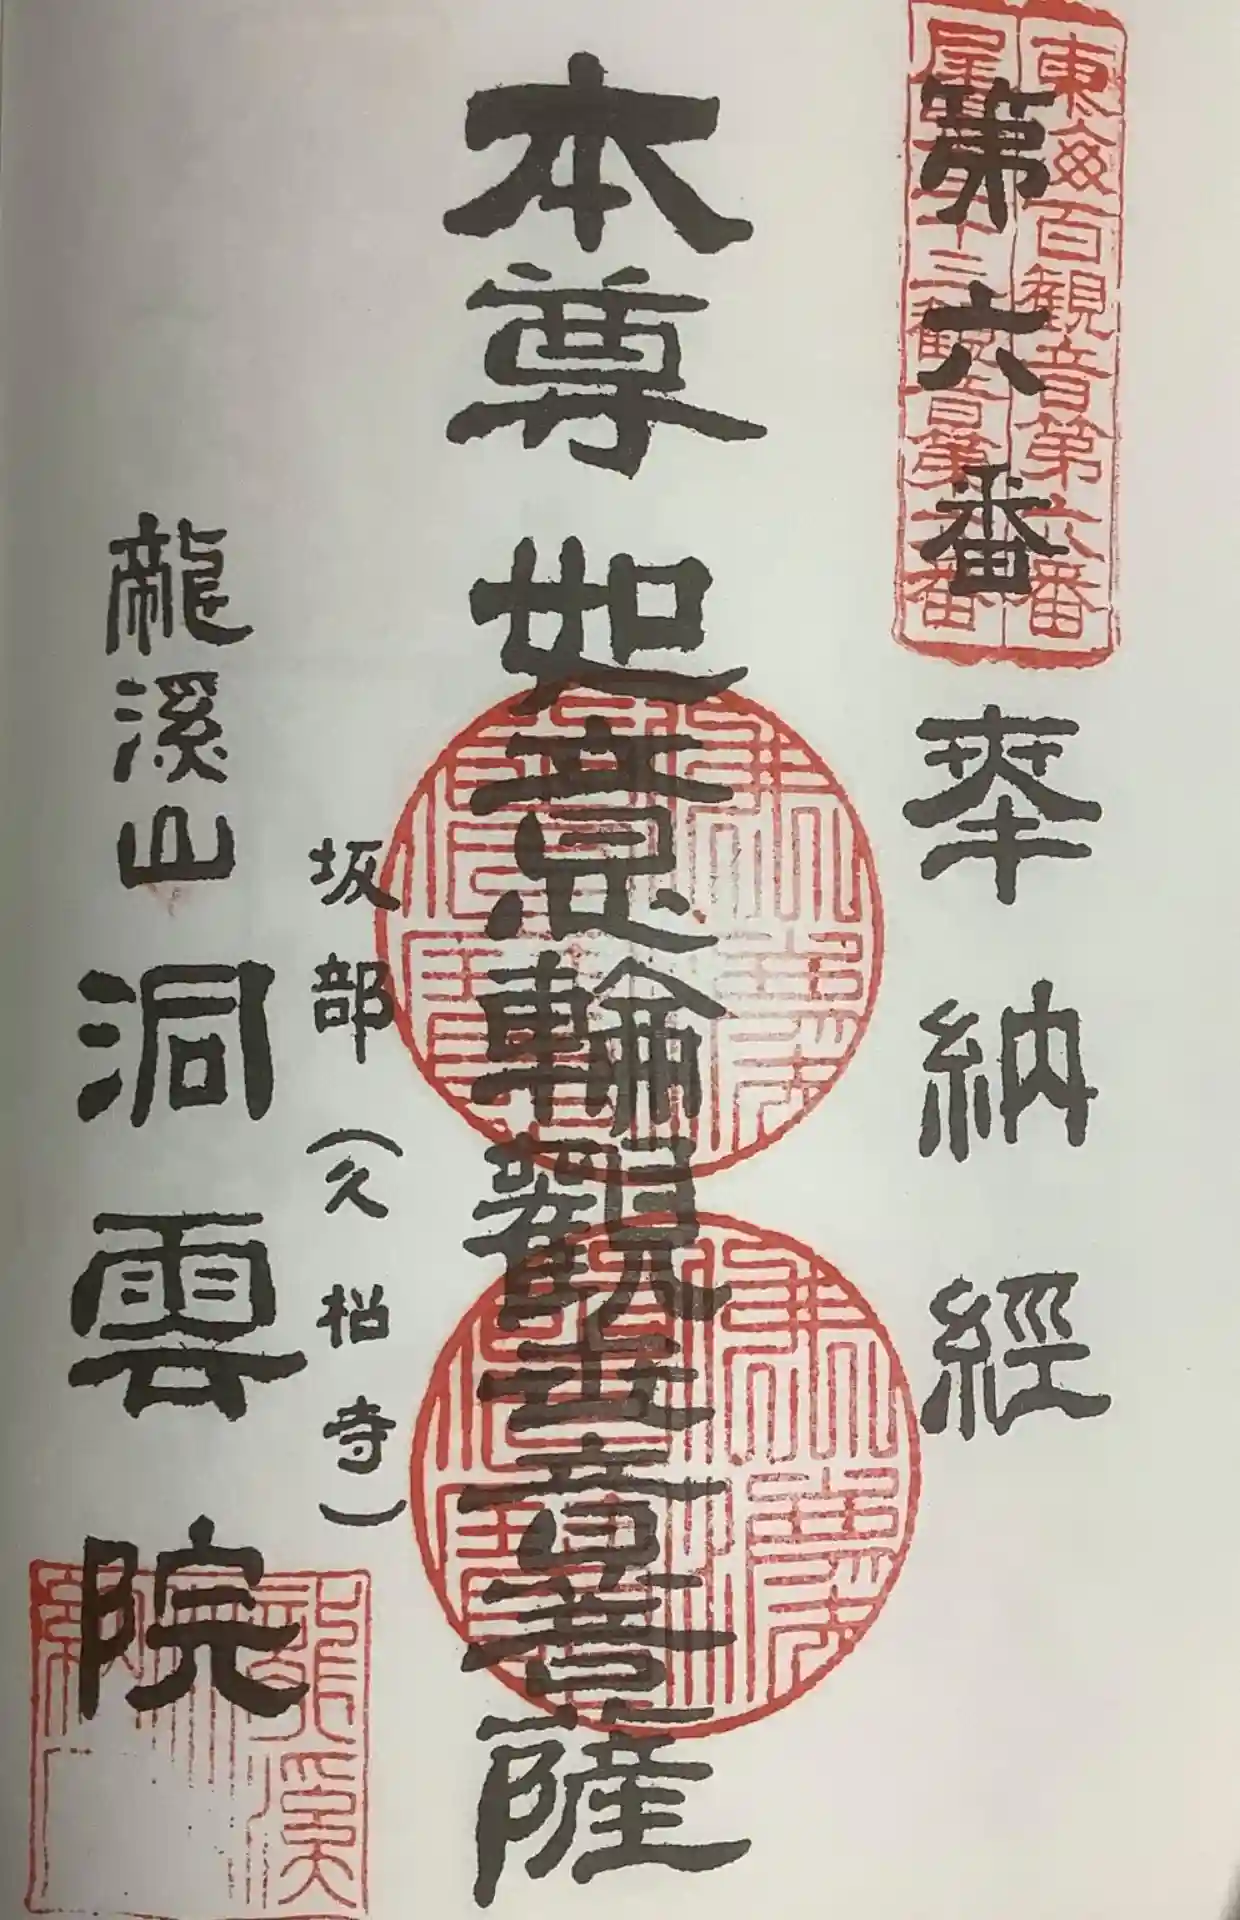 東海百観音第六番
尾張三十三観音第六番
第六番
奉納經
本尊 如意輪觀世音菩薩
坂部(久松寺)
龍溪山 洞雲院